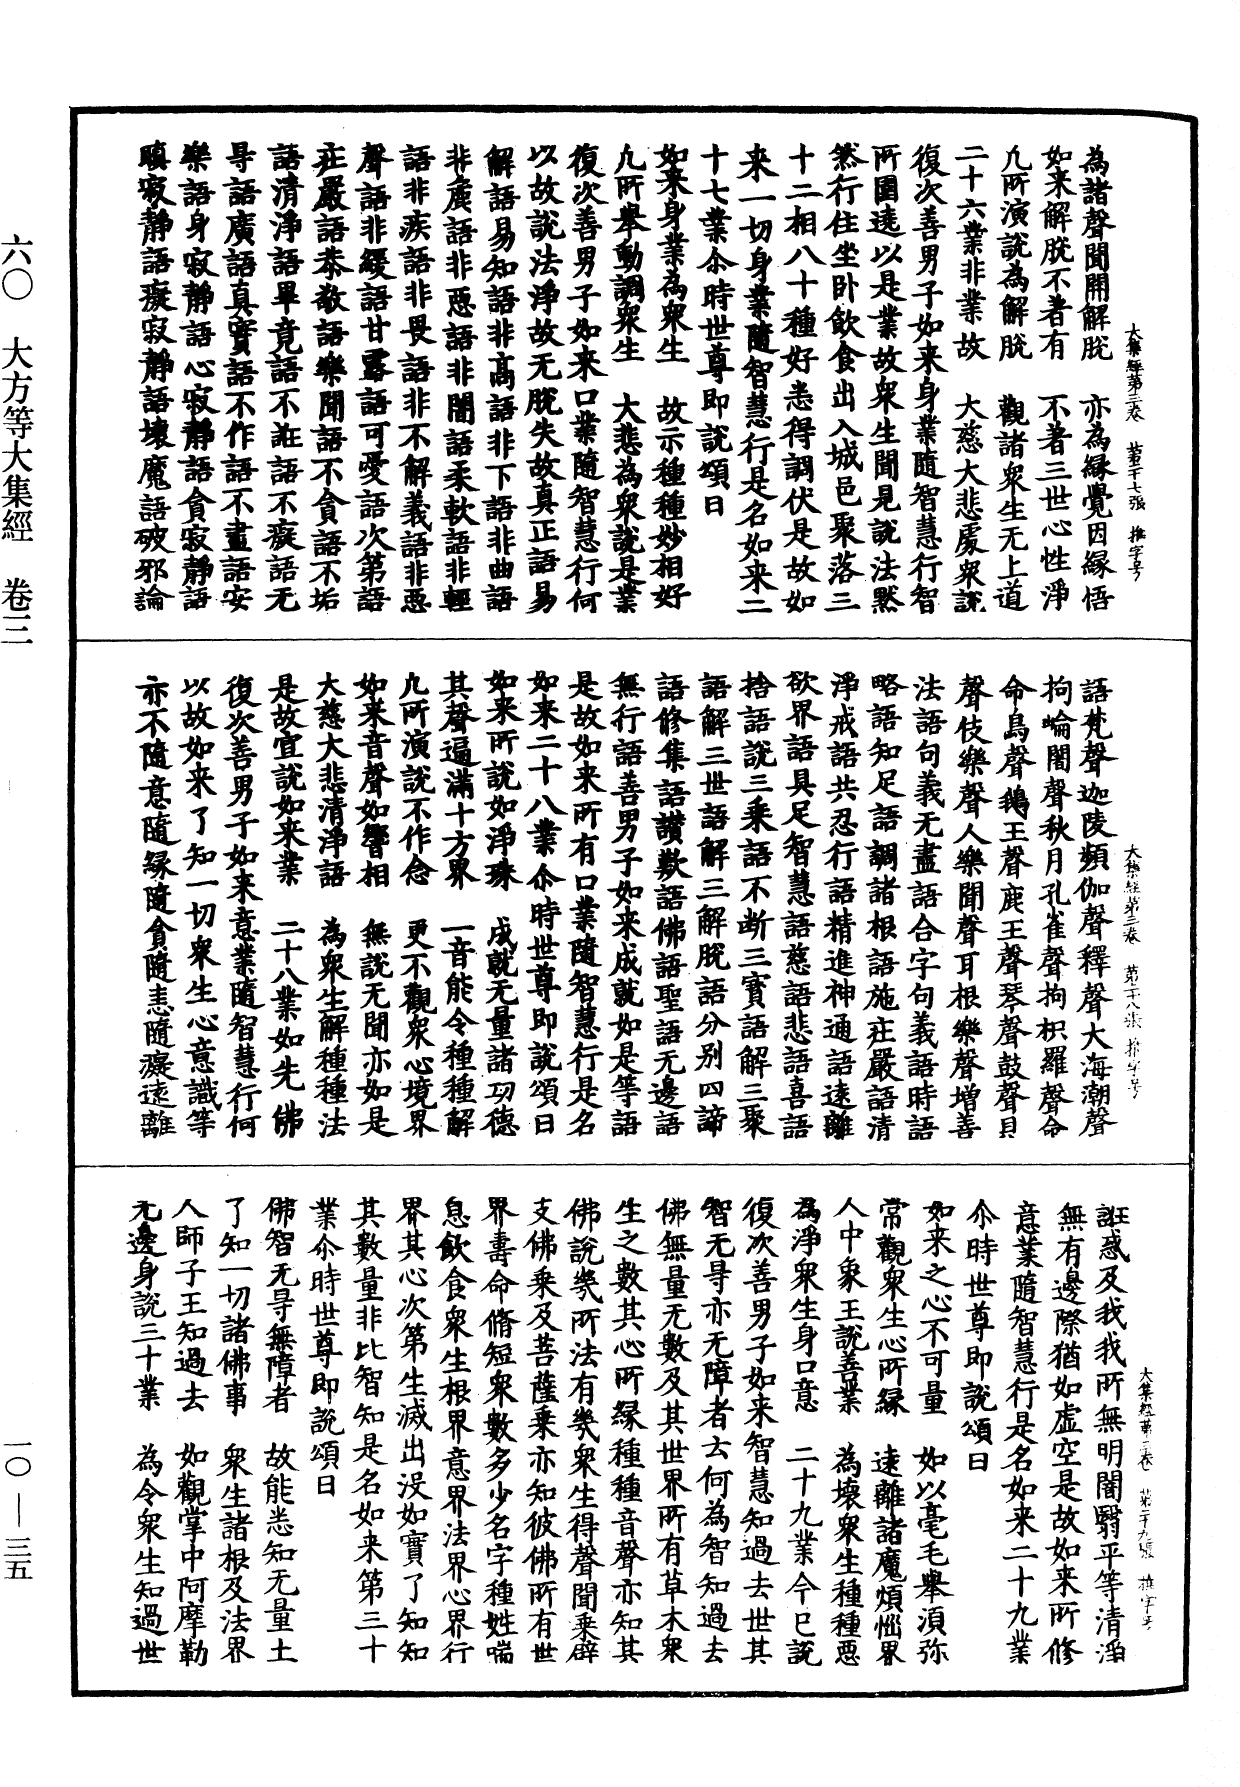 六〇　大方等大集經　卷三
一〇—三五
大集經第三卷　第二十七張　推字号
為諸聲聞開解脫　亦為緣覺因緣悟
如来解脫不著有　不著三世心性淨
凢所演說為解脫　觀諸衆生无上道
二十六業非業故　大慈大悲處衆說
復次善男子如来身業隨智慧行智
所圍遶以是業故衆生聞見說法黙
然行住坐卧飲食出入城邑聚落三
十二相八十種好悉得調伏是故如
来一切身業隨智慧行是名如来二
十七業尒時世尊即說頌曰
如来身業為衆生　故示種種妙相好
凢所舉動調衆生　大悲為衆說是業
復次善男子如来口業隨智慧行何
以故說法淨故无脫失故真正語易
解語易知語非高語非下語非曲語
非廣語非惡語非闇語柔軟語非輕
語非疾語非畏語非不解義語非惡
聲語非緩語甘露語可愛語次第語
庄嚴語恭敬語樂聞語不貪語不垢
語清淨語畢竟語不誑語不癡語无
㝵語廣語真實語不作語不盡語安
樂語身寂靜語心寂靜語貪寂靜語
瞋寂靜語癡寂靜語壞魔語破邪論
大集經第三卷　第二十八張　推字号
語梵聲迦陵頻伽聲釋聲大海潮聲
拘崘闍聲秋月孔雀聲拘枳羅聲命
命鳥聲鵝王聲鹿王聲琴聲鼓聲貝
聲伎樂聲人樂聞聲耳根樂聲增善
法語句義无盡語合字句義語時語
略語知足語調諸根語施庄嚴語清
淨戒語共忍行語精進神通語遠離
欲界語具足智慧語慈語悲語喜語
捨語說三乗語不断三寶語解三聚
語解三世語解三解脫語分别四諦
語修集語讃歎語佛語聖語无邊語
無行語善男子如来成就如是等語
是故如来所有口業隨智慧行是名
如来二十八業尒時世尊即說頌曰
如来所說如淨珠　成就无量諸功德
其聲遍滿十方界　一音能令種種解
凢所演說不作念　更不觀衆心境界
如来音聲如響相　無說无聞亦如是
大慈大悲清淨語　為衆生解種種法
是故宣說如来業　二十八業如先佛
復次善男子如来意業隨智慧行何
以故如来了知一切衆生心意識等
亦不隨意隨緣隨貪隨恚隨癡遠離
大集經第三卷　第二十九張　推字号
誑惑及我我所無明闇翳平等清淨
無有邊際猶如虛空是故如来所修
意業隨智慧行是名如来二十九業
尒時世尊即說頌曰
如来之心不可量　如以毫毛舉湏弥
常觀衆生心所緣　遠離諸魔煩惱界
人中象王說善業　為壞衆生種種惡
為淨衆生身口意　二十九業今已說
復次善男子如来智慧知過去世其
智无㝵亦无障者去何為智知過去
佛無量无數及其世界所有草木衆
生之數其心所緣種種音聲亦知其
佛說㡬所法有㡬衆生得聲聞乗辟
支佛乗及菩薩乗亦知彼佛所有世
界壽命脩短衆數多少名字種姓喘
息飲食衆生根界意界法界心界行
界其心次第生滅出没如實了知知
其數量非比智知是名如来第三十
業尒時世尊即說頌曰
佛智无㝵無障者　故能悉知无量土
了知一切諸佛事　衆生諸根及法界
人師子王知過去　如觀掌中阿摩勒
无邊身說三十業　為令衆生知過世